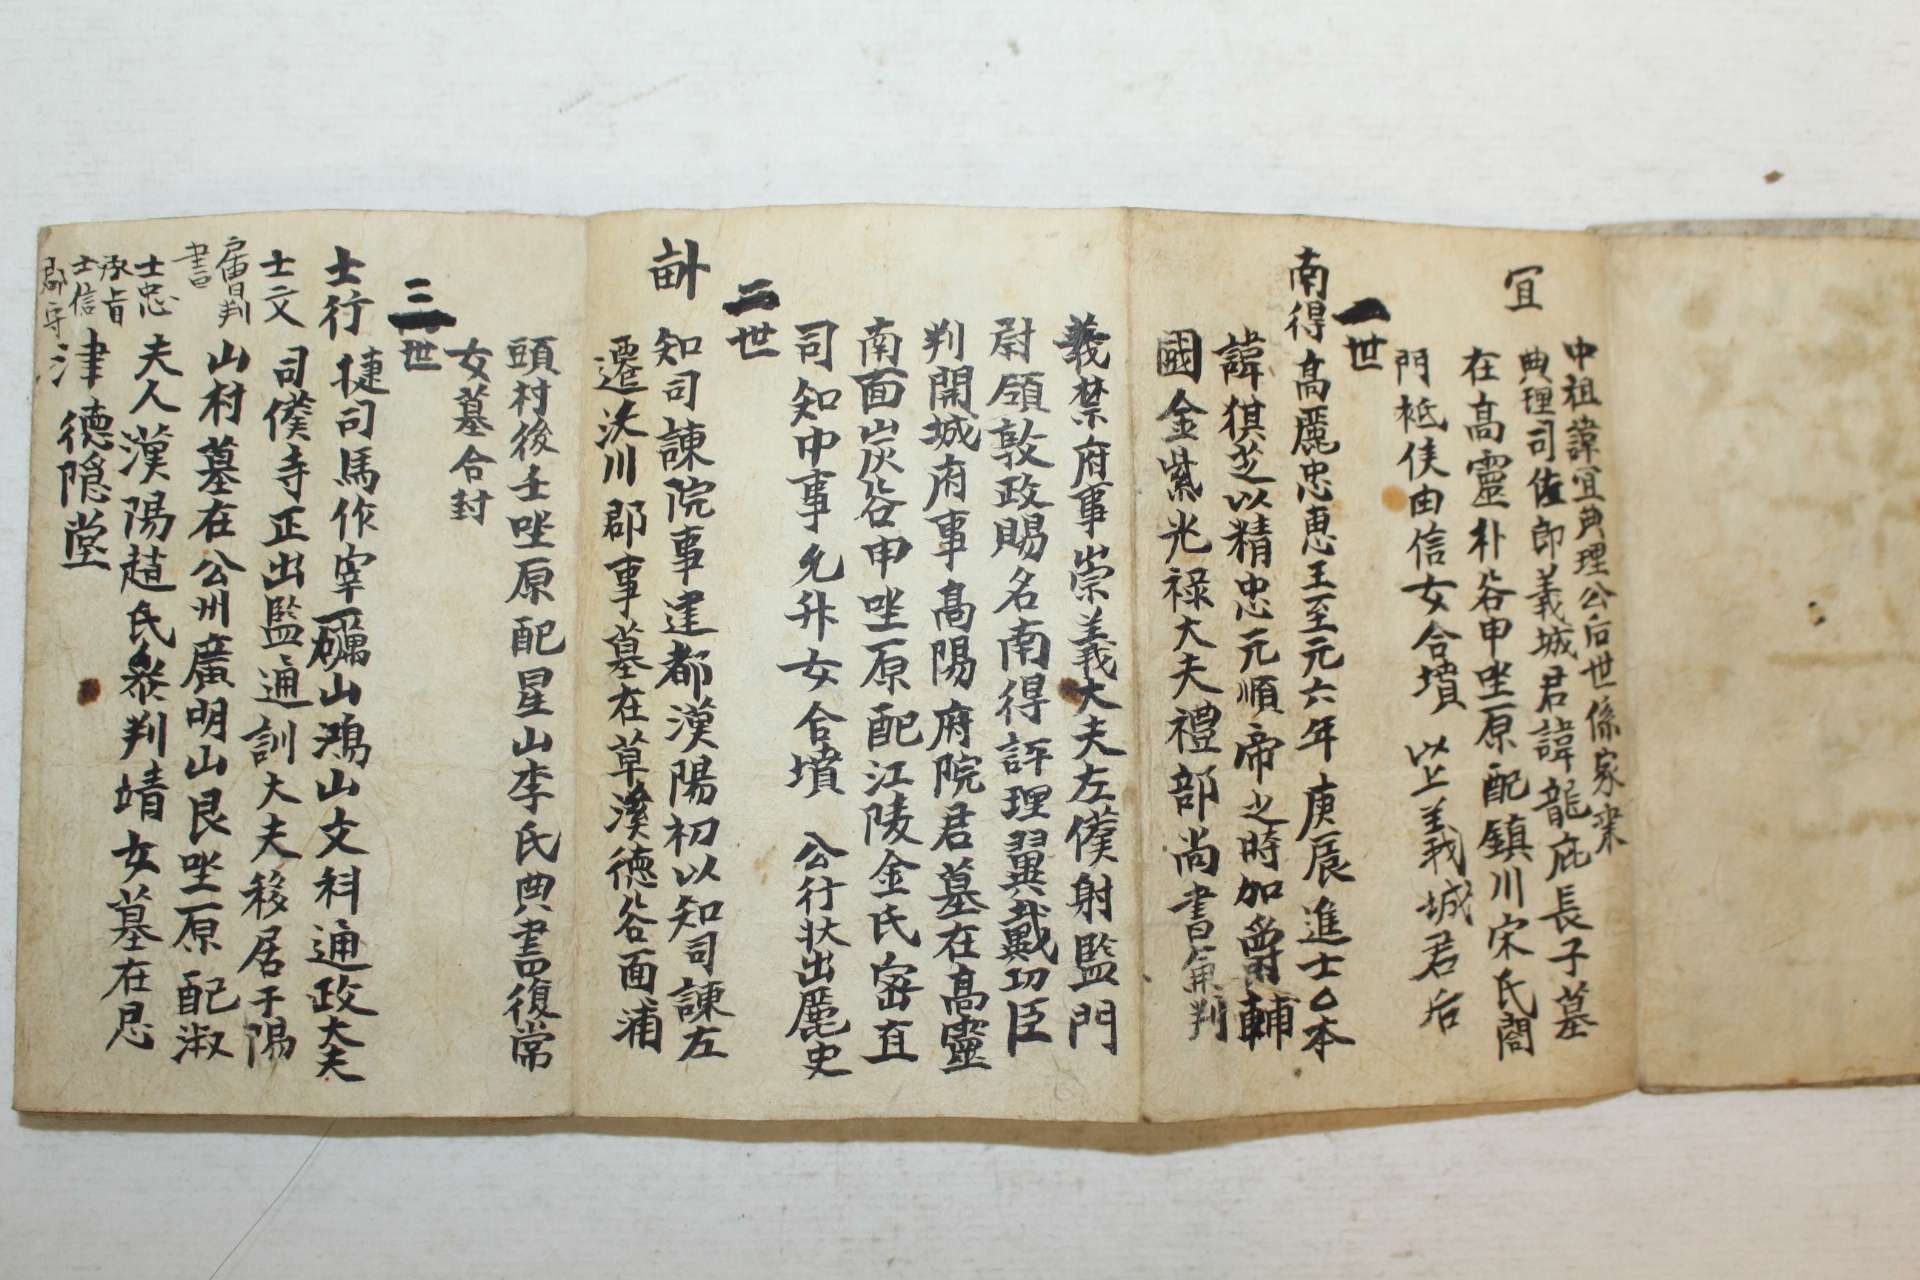 中祖諱宜典理公后世係家業
宜
典理司佐郎義城君諱龍庇長子墓
在高靈朴谷申坐原配鎮川宋氏閤
門袛侯由信女合墳 以上義城君后
一世
南得 高麗忠惠王至元六年庚辰進士乙本
諱祺芝以精忠元順帝之時加爵輔
國金紫光祿大夫禮部尚書兼判
義禁府事崇義大夫左僕射監門
尉領敦政賜名南得評理翼戴功臣
判開城府事高陽府院君墓在高靈
南面炭谷申坐原配江陵金氏密直
司知申事允升女合墳 公行狀出麗史
二世
知司諫院事建都漢陽初以知司諫左
遷 川郡事墓在草溪德谷面浦
頭村後壬坐原配星山李氏典書復常
女墓合封
三世
士行 捷司馬作宰礪山鴻山文科通政大夫
士文 司僕寺正出監通訓大夫移居于陽
曹判書
山村墓在公州廣明山艮坐原配淑
士忠 夫人漢陽趙氏參判靖女墓在恩
承旨
士信 津 德隱堂
郡守